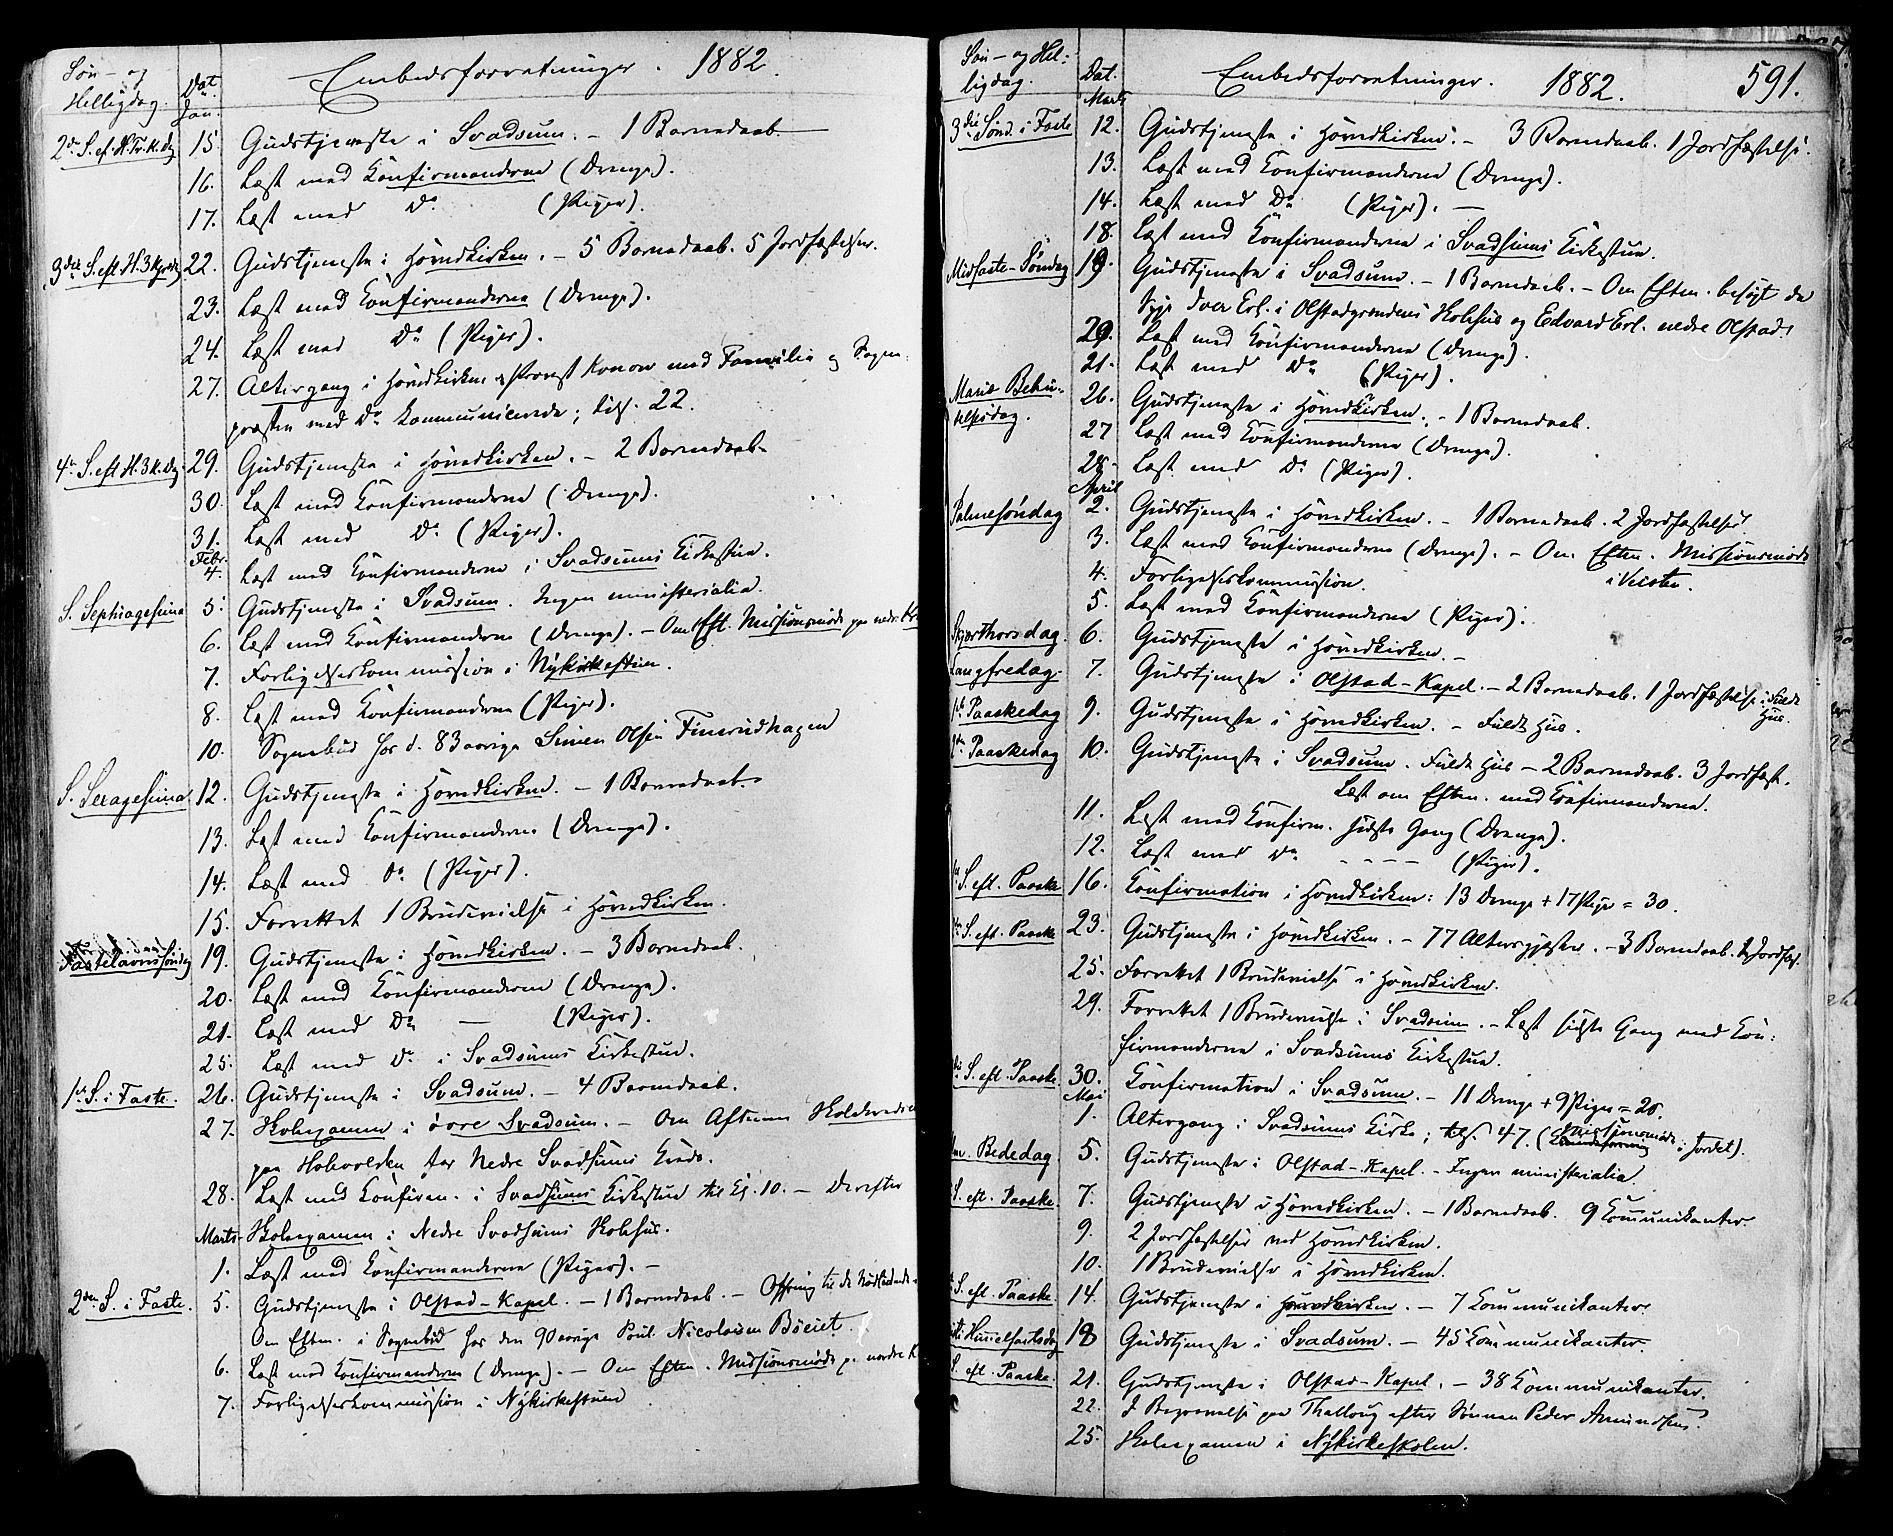 Søn- og
Helligdag.
Dat.
Embedsforretninger. 1882.
Jan.
2den S. ef. H. Tr. K. Dg 15. Gudstjeneste i Svadsum. - 1 Barnedaab
16. Læst med Konfirmanderne (Drenge).
17. Læst med Do (Piger).
3die S. eft. H. 3 Kgrsdg 22. Gudstjeneste i Hovedkirken. - 5 Barnedaab. 5 Jordfæstelser.
23. Læst med Konfirmanderne (Drenge).
24. Læst med Do (Piger).
27. Altergang i Hovedkirken, Provst Konow med Familie og Sogne-
præsten med Do kommunicerede; tils. 22.
4de S. eft H. 3 K. Dg. 29. Gudstjeneste i Hovedkirken. - 2 Barnedaab.
30. Læst med Konfirmanderne (Drenge).
31. Læst med Do (Piger).
Febr.
4. Læst med Konfirmanderne i Svadsums Kirkestue.
S. Septuagesima 5. Gudstjeneste i Svadsum. Ingen ministerialia.
6. Læst med Konfirmanderne (Drenge). - Om Eft. Missionsmøde paa nedre
7. Forligelseskommission i Nykirkestuen.
8. Læst med Konfirmanderne (Piger).
10. Sognebud hos d. 83 aarige Simen Olsen Finsrudhagen
S. Sexagesima 12. Gudstjeneste i Hovedkirken. - 1 Barnedaab.
13. Læst med Konfirmanderne (Drenge).
14. Læst med Do (Piger).
15. Forrettet 1 Brudevielse i Hovedkirken.
Fastelavns Søndag 19. Gudstjeneste i Hovedkirken. - 3 Barnedaab.
20. Læst med Konfirmanderne (Drenge).
21. Læst med Do - (Piger).
25. Læst med Do i Svadsums Kirkestue.
1ste S. i Faste. 26. Gudstjeneste i Svadsum. - 4 Barnedaab.
27. Skoleexamen i øvre Svadsum. - Om Aftenen
paa for Nedre Svadsums Kreds.
28. Læst med Konfirm. i Svadsums Kirkestue til Kl. 10. - Derefter
Marts Skolexamen i Nedre Svadsums Skolehus.
1. Læst med Konfirmanderne (Piger). -
2den S. i Faste. 5. Gudstjeneste i Olstad-Kapel. - 1 Barnedaab. - Offring til de Nødlidende
Om Eften. i Sognebud hos den 90 aarige Poul Nicolaisen
6. Læst med Konfirmanderne (Drenge). - Om Eften. Missionsmøde paa nordre
7. Forligelseskommission i Nykirkestuen
Søn- og Hel-
ligdag.
Dat.
Embedsforretninger. 1882. 591.
Marts
3die Sønd. i Faste 12. Gudstjeneste i Hovedkirken. - 3 Barnedaab. 1 Jordfæstelse.
13. Læst med Konfirmanderne (Drenge).
14. Læst med Do (Piger). -
18. Læst med Konfirmanderne i Svadsums Kirkestue.
Midfaste-Søndag 19. Gudstjeneste i Svadsum. - 1 Barnedaab. - Om Eften. besøgt de
syge Iver Erl. i Olstadgrendens Skolehus og Edvard Erl. nedre Olstad.
20. Læst med Konfirmanderne (Drenge).
21. Læst med Do (Piger).
Mariæ Bebu-
delsesdag.
26. Gudstjeneste i Hovedkirken. - 1 Barnedaab.
27 Læst med Konfirmanderne (Drenge).
28. Læst med Do (Piger).
April
Palmesøndag 2. Gudstjeneste i Hovedkirken. - 1 Barnedaab. 2 Jordfæstelser
3. Læst med Konfirmanderne (Drenge). - Om Eften. Missionsmøde
i Veisten.
4. Forligelseskommission.
5. Læst med Konfirmanderne (Piger).
Skjærthorsdag. 6. Gudstjeneste i Hovedkirken. -
Langfredag. 7. Gudstjeneste i Olstad-Kapel. - 2 Barnedaab. 1 Jordfæstelse. Fuldt
Hus.
1ste Paaskedag 9. Gudstjeneste i Hovedkirken. - Fuldt Hus.
2den Paaskedag 10. Gudstjeneste i Svadsum. Fuldt Hus - 2 Barnedaab. 3 Jordfæst.
Læst om Eften. med Konfirmanderne.
11. Læst med Konfirm. sidste Gang (Drenge).
12. Læst med Do - - - - (Piger).
S. eft. Paaske 16. Konfirmation i Hovedkirken: 13 Drenge + 17 Piger = 30.
S. eft. Paaske 23. Gudstjeneste i Hovedkirken. - 77 Altergjæster. - 3 Barnedaab. Jordfæst.
25. Forrettet 1 Brudevielse i Hovedkirken.
29. Forrettet 1 Brudevielse i Svadsum. - Læst sidste Gang med Kon-
firmanderne i Svadsums Kirkestue.
S. eft. Paaske 30. Konfirmation i Svadsum. - 11 Drenge + 9 Piger = 20.
Mai
1. Altergang i Svadsums Kirke; tils. 47. (Missionsmøde i Jordet).
Bededag 5. Gudstjeneste i Olstad-Kapel. - Ingen ministerialia.
S. eft. Paaske. 7. Gudstjeneste i Hovedkirken. - 1 Barnedaab. 9 Kommunikanter.
9. 2 Jordfæstelser ved Hovedkirken.
10. 1 Brudevielse i Hovedkirken.
S. eft. Paaske 14. Gudstjeneste i Hovedkirken. - 7 Kommunikanter
Himmelfartsdag 18 Gudstjeneste i Svadsum. - 45 Kommunikanter.
S. eft. Paaske. 21. Gudstjeneste i Olstad-Kapel. - 38 Kommunikanter.
22. I Begravelse paa Thalloug efter Sønnen Peder Amundsen.
25. Skolexamen i Nykirkeskolen.